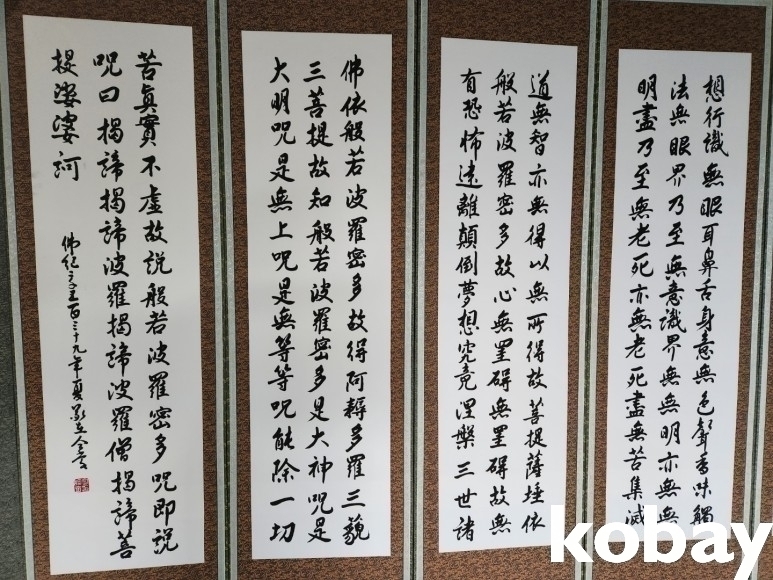 想行識無眼耳鼻舌身意無色聲香味觸
法無眼界乃至無意識界無無明亦無無
明盡乃至無老死亦無老死盡無苦集滅
道無智亦無得以無所得故菩提薩埵依
般若波羅密多故心無罣碍無罣碍故無
有恐怖遠離顛倒夢想究竟涅槃三世諸
佛依般若波羅密多故得阿耨多羅三藐
三菩提故知般若波羅密多是大神呪是
大明呪是無上呪是無等等呪能除一切
苦真實不虛故説般若波羅密多呪即説
呪曰揭諦揭諦波羅揭諦波羅僧揭諦菩
提娑婆訶
佛紀二五百三十九年夏
kobay